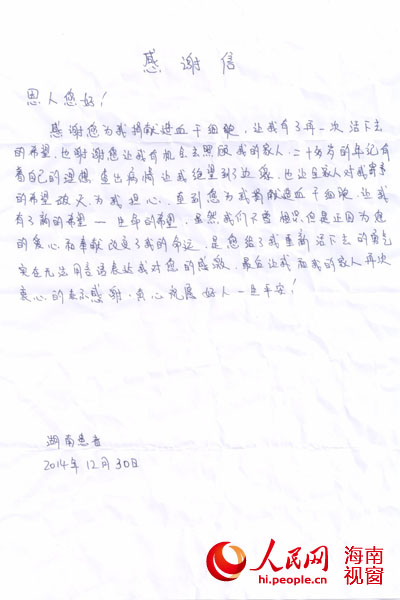 感谢信
恩人您好！
感谢您为我捐献造血干细胞，让我有了再一次活下去
的希望，也谢谢您让我有机会去照顾我的家人，二十多岁的年纪有
着自己的理想，查出病情让我绝望到了边缘，也让全家人对我寄予
的希望破灭，为我担心，直到您为我捐献造血干细胞，让我
有了新的希望——生命的希望，虽然我们不曾相识但是正因为您
的爱心和奉献改变了我的命运，是您给了我重新活下去的勇气
实在无法用言语表达我对您的感激，最后让我和我的家人再次
衷心的表示感谢，衷心祝愿好人一生平安！
湖南患者
2014年12月30日
人民网 海南
hi.people.cn 视窗